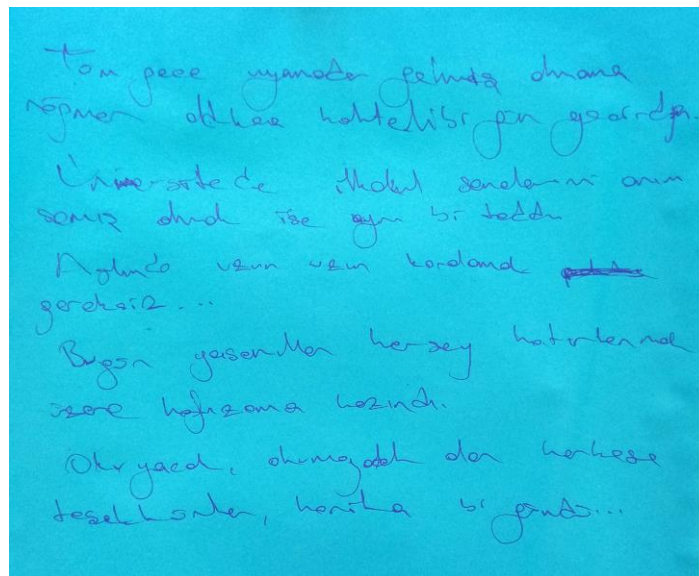 Tüm gece uyumadan gelmiş olmama
rağmen oldukca kaliteli bir gün geçirdim.
Üniversitede ilkokul senelerini anım
semiş olmak ise ayrı bi taddı.
Aslında uzun uzun karalamak
gereksiz...
Bugün yaşanılan herşey hatırlanmak
üzere hafızama kazındı.
Okuyacak, okumayacak olan herkese
teşekkürler, harika bi gündü...